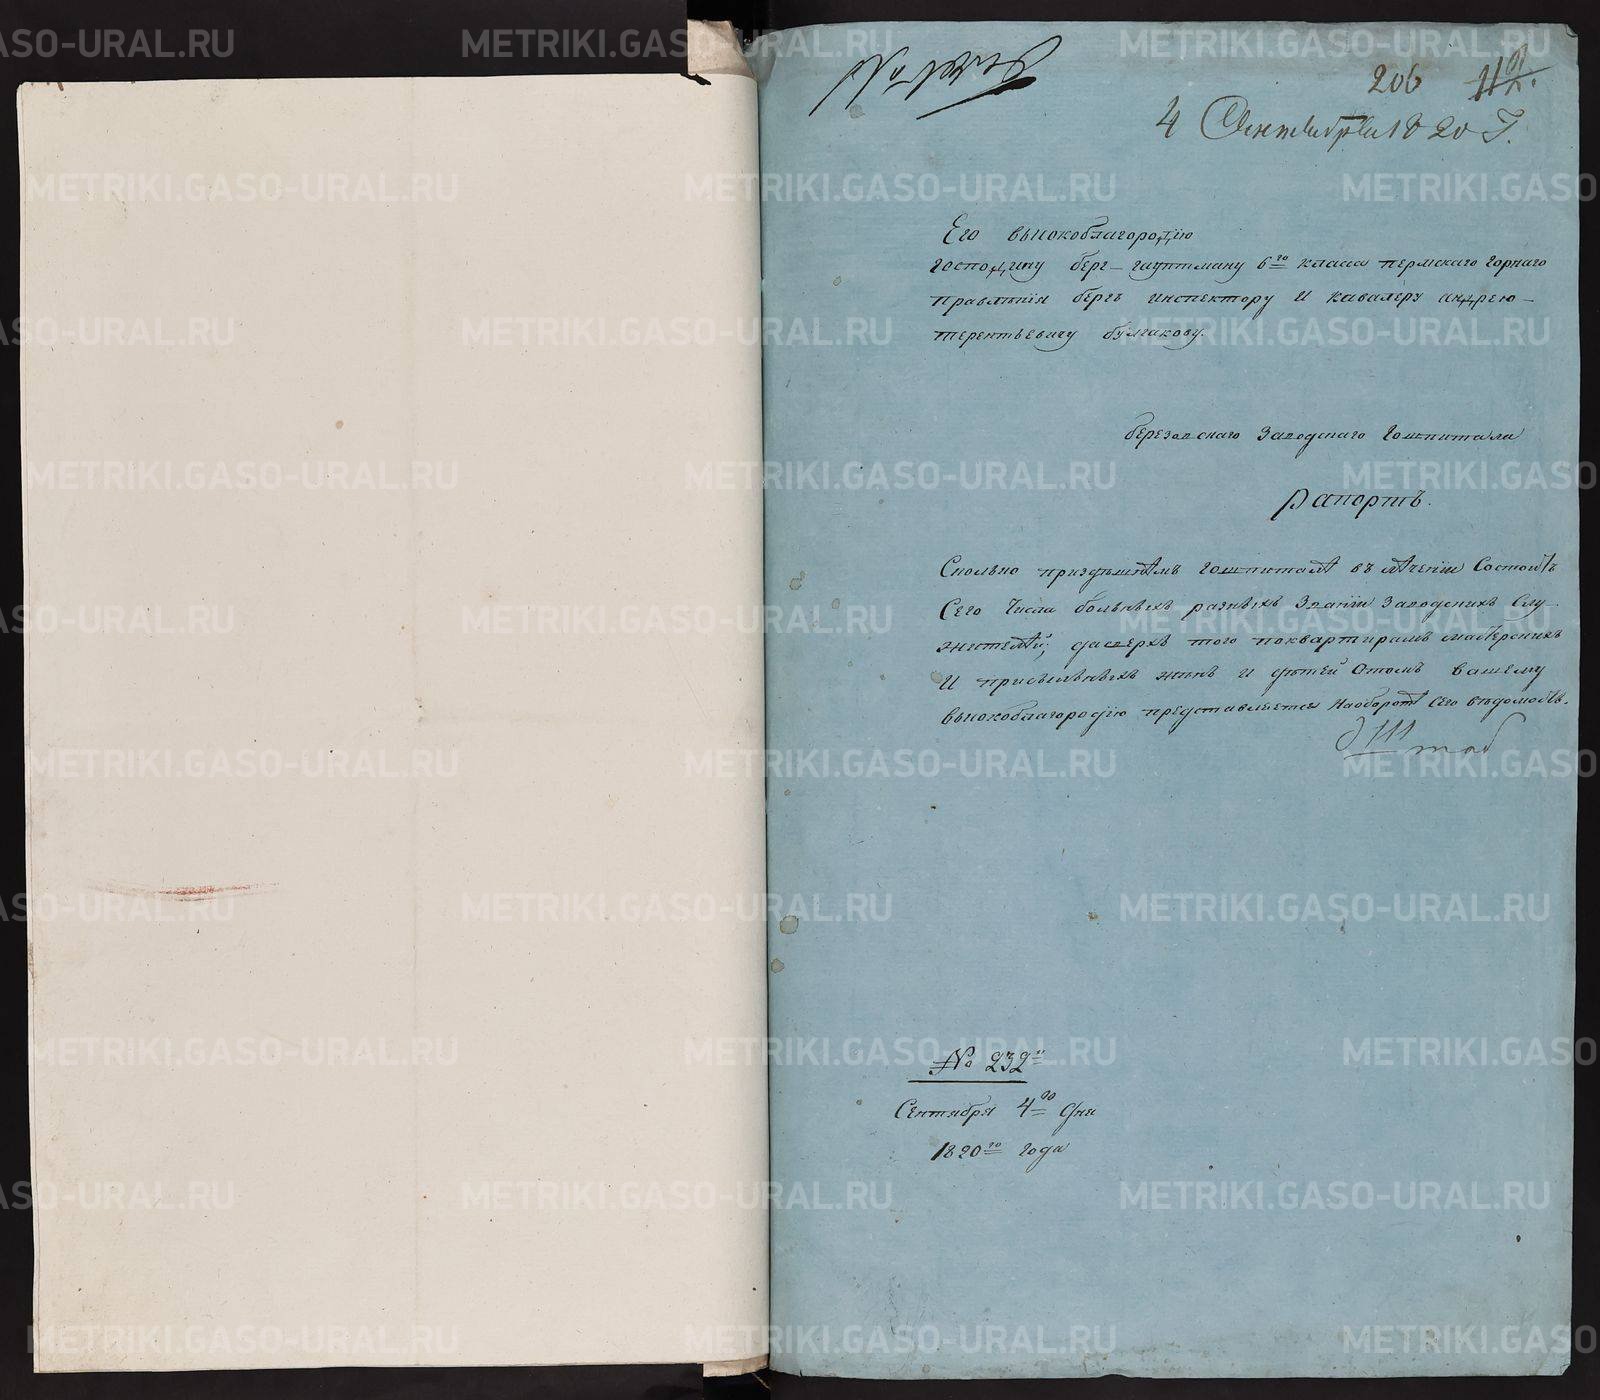 206
4 Сентября 1820 г.
Его высокоблагородію
господину берг-гауптману 6го класса пермскаго горнаго
правленія бергъ инспектору и кавалеру андрею
терентьевичу булгакову.
березовскаго заводскаго гошпиталя
Рапортъ.
Сколько приздѣшнѣмъ гошпиталѣ въ лѣченіи Состоитъ
Сего Числа больныхъ разныхъ званіи заводскихъ Слу-
жителѣй, дасверхъ того поквартирамъ мастерскихъ
И присыльныхъ жынъ и дѣтей Отомъ вашему
высокоблагородію представляется Наоборотѣ Сего вѣдомость.
Штаб
No 232й
Сентября 4го дня
1820го года
METRIKI.GASO-URAL.RU